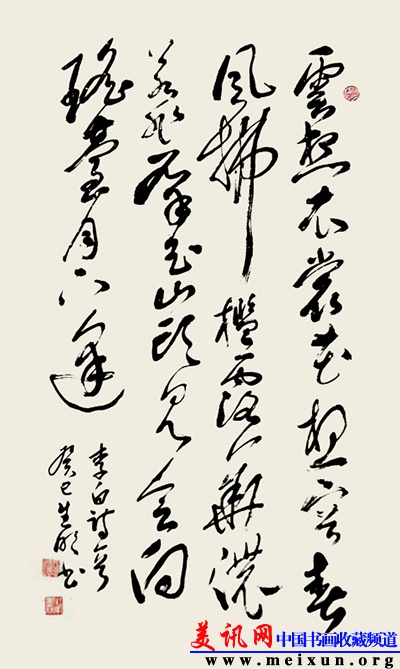 雲想衣裳花想容春
風拂檻露華濃
若非群玉山頭見會向
瑤臺月下逢
李白詩
癸巳生明书
美讯网 中国书画收藏频道
www.meixun.org